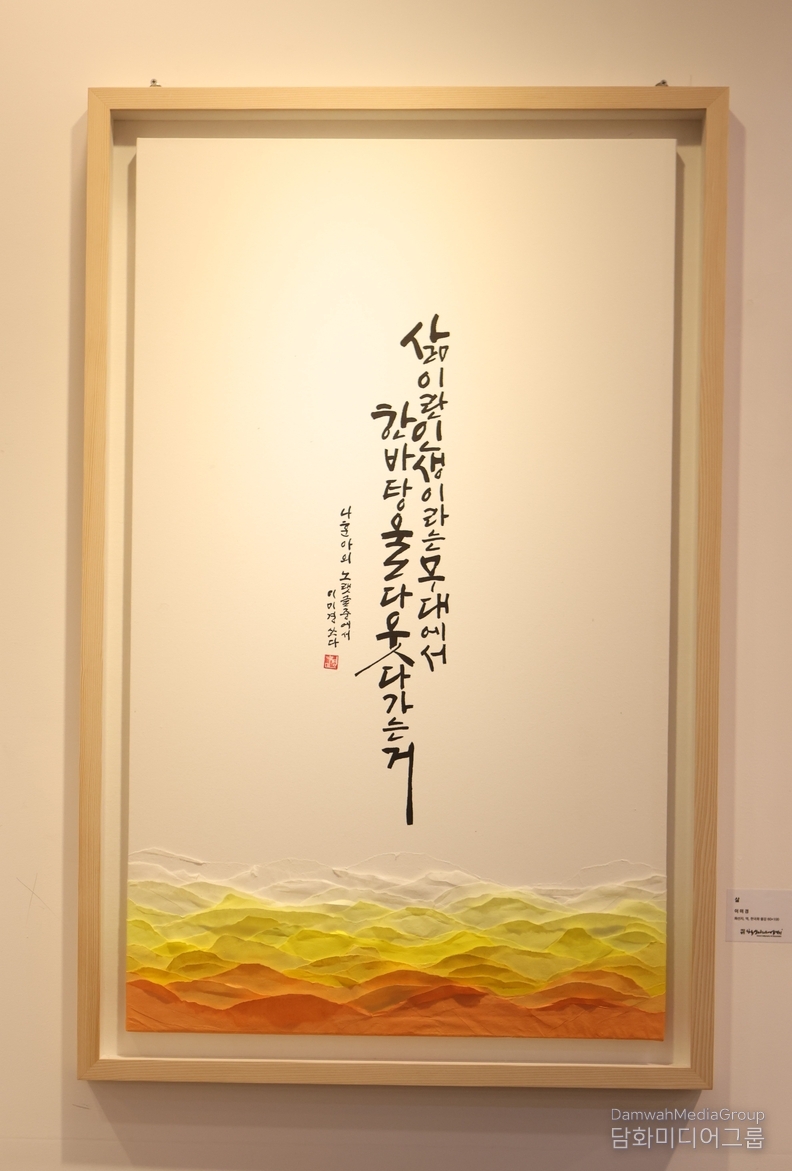 삶이란인생이라는무대에서
한바탕울다웃다가는거
나훈아의 노랫글중에서
이미경 쓰다
삶
이미경
DamwahMediaGroup
담화미디어그룹